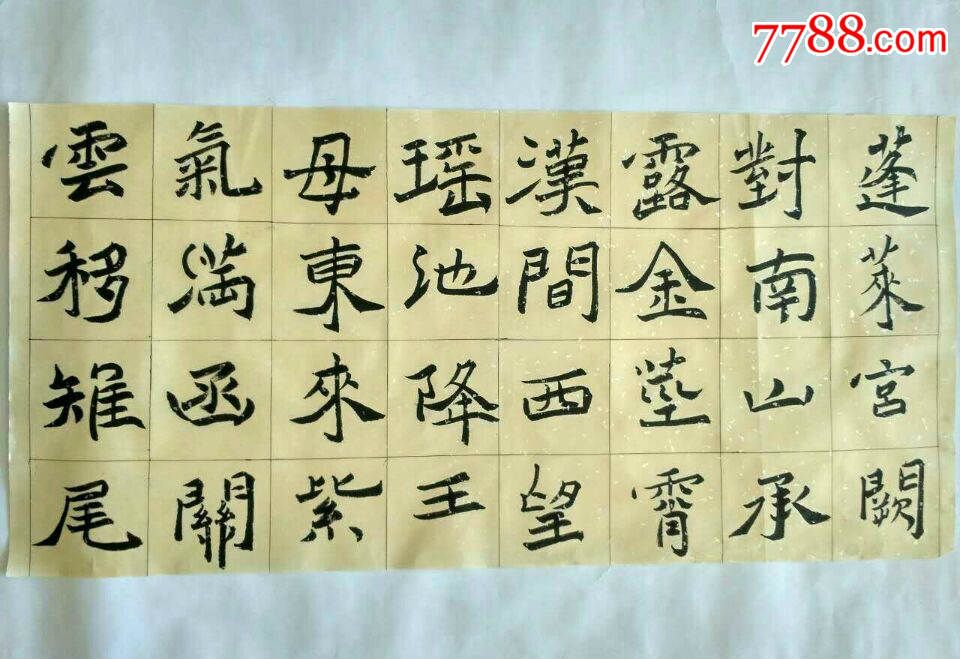 7788.com
蓬萊宮闕
對南山承
露金莖霄
漢間西望
瑶池降王
母東來紫
氣満函關
雲移雉尾